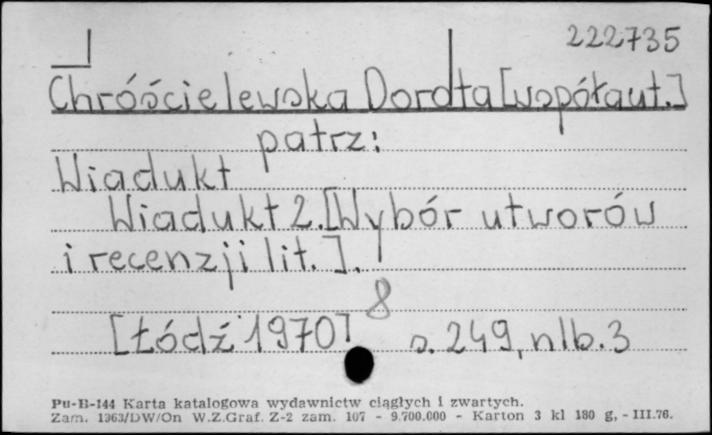 222735
Chróścielewska Dorota [współaut.]
patrz:
Wiadukt
Wiadukt 2. [Wybór utworów
i recenzji lit.].
8
[Łódź 1970] s. 249, nlb. 3
Pu-B-144 Karta katalogowa wydawnictw ciągłych i zwartych.
Zam. 1363/DW/On W.Z.Graf. Z-2 zam. 107 - 9.700.000 - Karton 3 kl 180 g, - III.76.